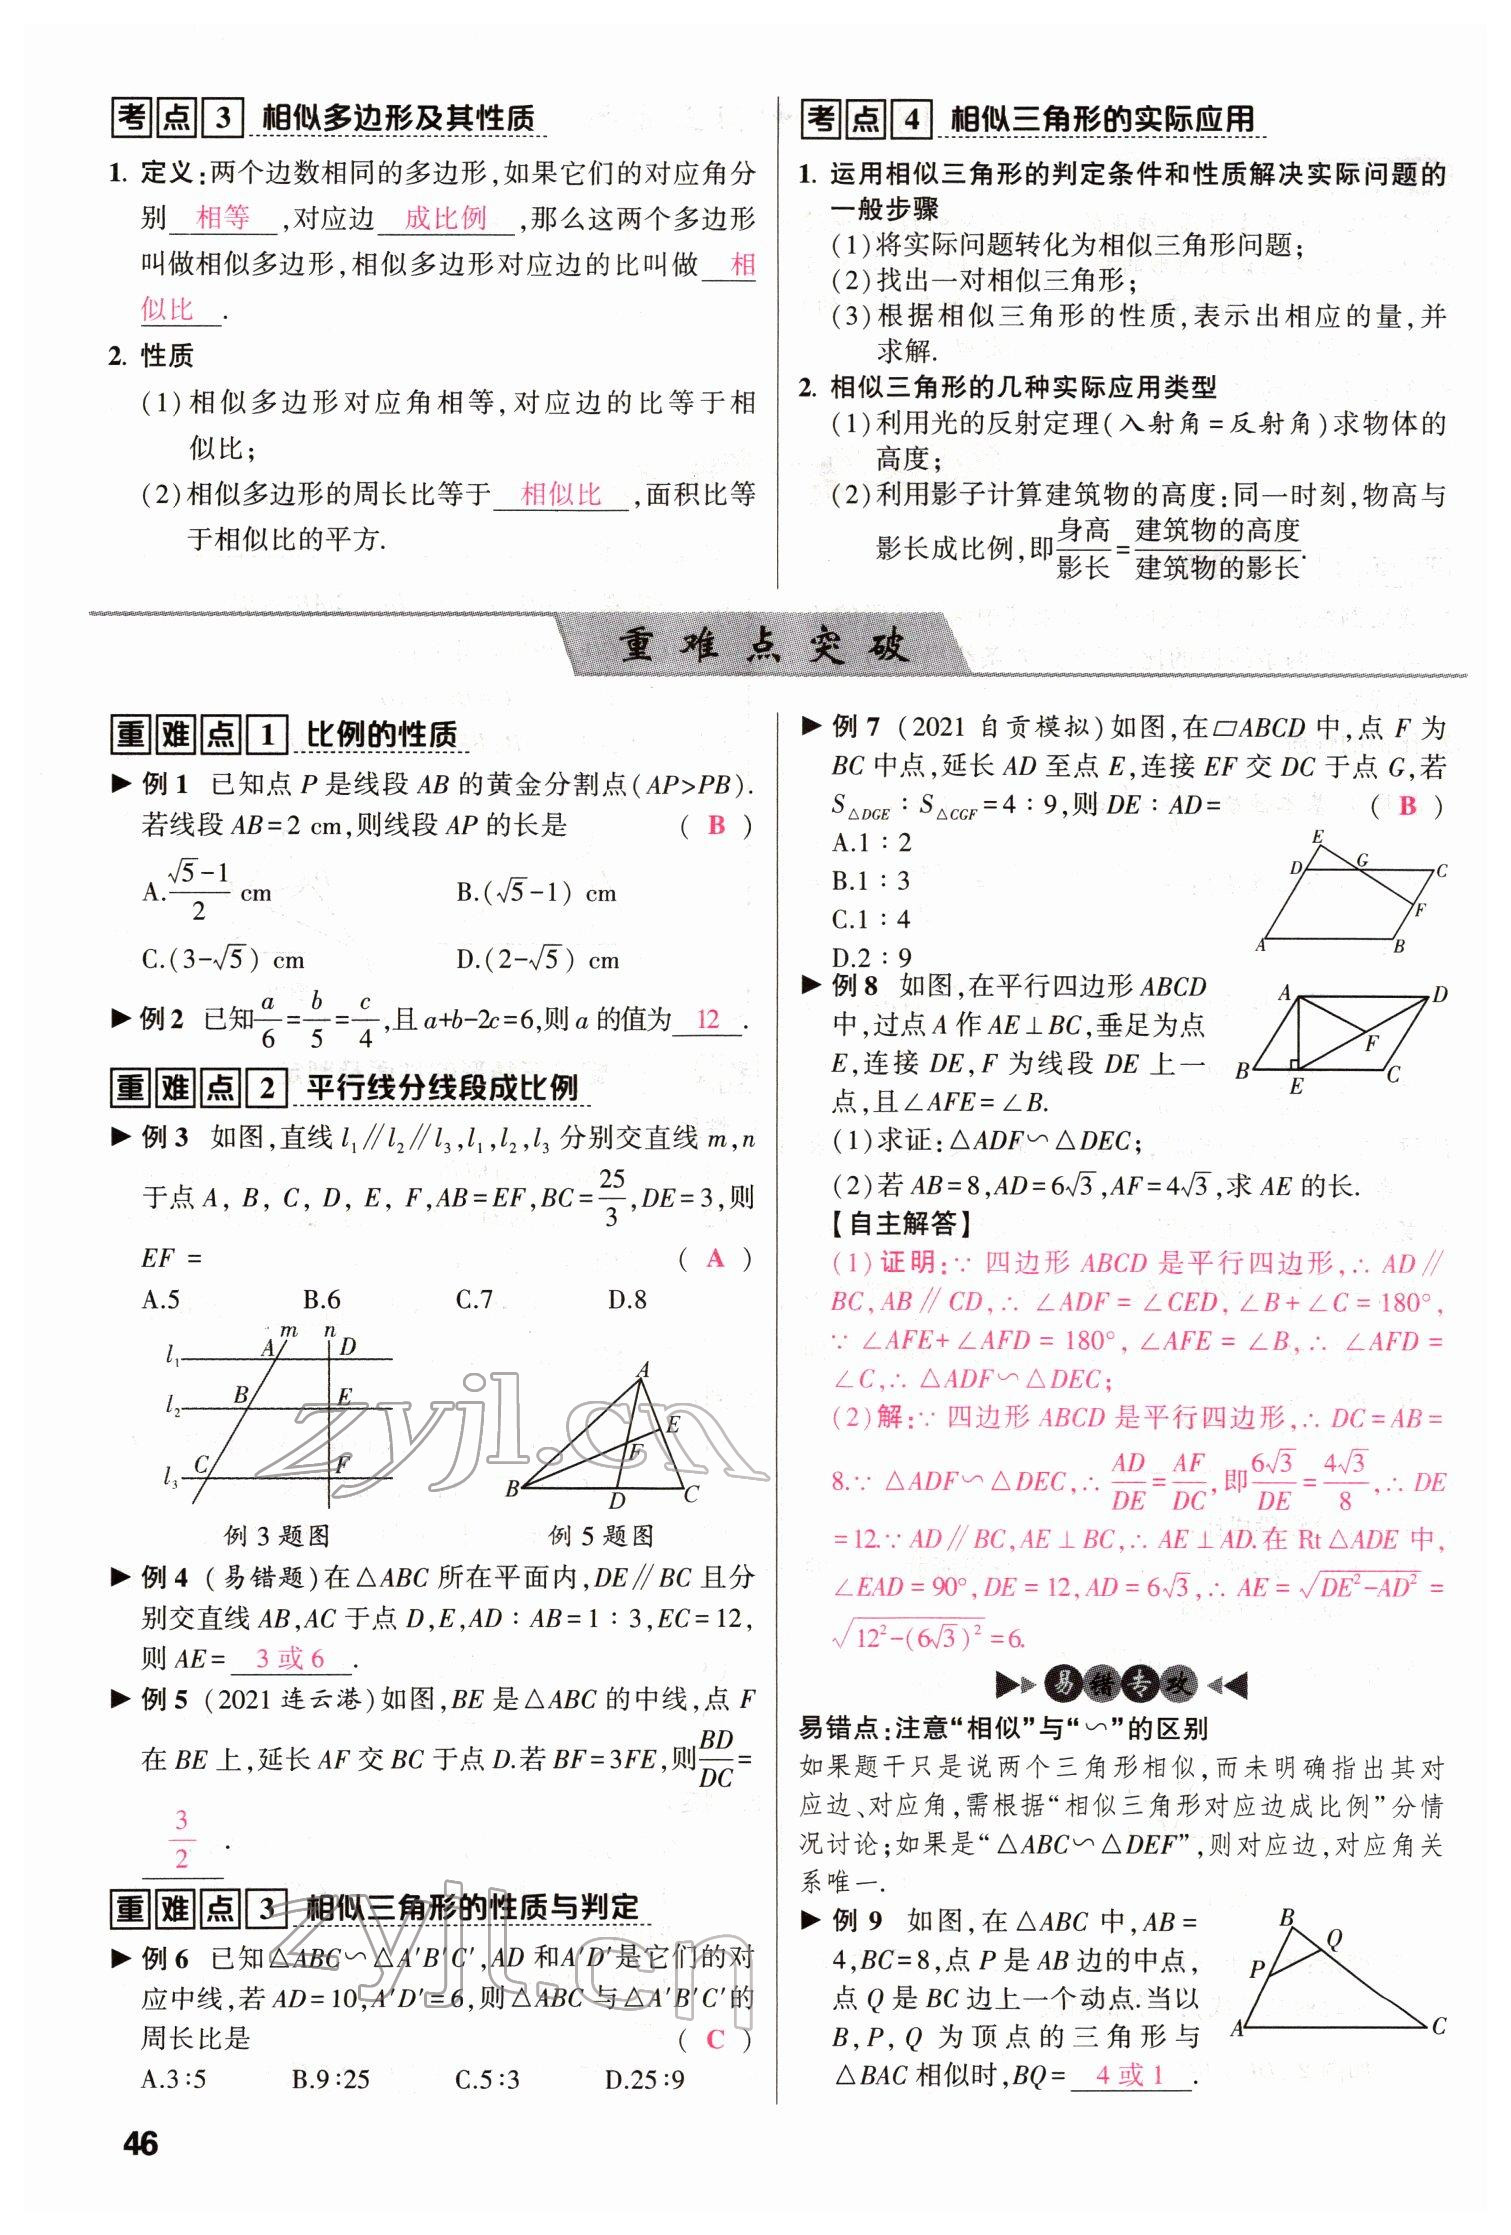 考点3 相似多边形及其性质
1. 定义:两个边数相同的多边形,如果它们的对应角分
别 相等 ,对应边 成比例 ,那么这两个多边形
叫做相似多边形,相似多边形对应边的比叫做 相
似比 .
2. 性质
(1)相似多边形对应角相等,对应边的比等于相
似比;
(2)相似多边形的周长比等于 相似比 ,面积比等
于相似比的平方.
考点4 相似三角形的实际应用
1. 运用相似三角形的判定条件和性质解决实际问题的
一般步骤
(1)将实际问题转化为相似三角形问题;
(2)找出一对相似三角形;
(3)根据相似三角形的性质,表示出相应的量,并
求解.
2. 相似三角形的几种实际应用类型
(1)利用光的反射定理(入射角=反射角)求物体的
高度;
(2)利用影子计算建筑物的高度:同一时刻,物高与
影长成比例,即身高/影长=建筑物的高度/建筑物的影长.
重难点突破
重难点1 比例的性质
▶例1 已知点P是线段AB的黄金分割点(AP>PB).
若线段AB=2 cm,则线段AP的长是 ( B )
A.(√5-1)/2 cm B.(√5-1) cm
C.(3-√5) cm D.(2-√5) cm
▶例2 已知a/6=b/5=c/4,且a+b-2c=6,则a的值为 12 .
重难点2 平行线分线段成比例
▶例3 如图,直线l₁∥l₂∥l₃,l₁,l₂,l₃分别交直线m,n
于点A,B,C,D,E,F,AB=EF,BC=25/3,DE=3,则
EF= ( A )
A.5 B.6 C.7 D.8
m n
l₁ A D
l₂ B E
l₃ C F
例3题图
A
E
F
B D C
例5题图
▶例4 (易错题)在△ABC所在平面内,DE∥BC且分
别交直线AB,AC于点D,E,AD∶AB=1∶3,EC=12,
则AE= 3或6 .
▶例5 (2021连云港)如图,BE是△ABC的中线,点F
在BE上,延长AF交BC于点D.若BF=3FE,则BD/DC=
3/2 .
重难点3 相似三角形的性质与判定
▶例6 已知△ABC∽△A′B′C′,AD和A′D′是它们的对
应中线,若AD=10,A′D′=6,则△ABC与△A′B′C′的
周长比是 ( C )
A.3∶5 B.9∶25 C.5∶3 D.25∶9
46
▶例7 (2021自贡模拟)如图,在▱ABCD中,点F为
BC中点,延长AD至点E,连接EF交DC于点G,若
S△DGE∶S△CGF=4∶9,则DE∶AD= ( B )
A.1∶2
B.1∶3
C.1∶4
D.2∶9
E
D G C
F
A B
▶例8 如图,在平行四边形ABCD
中,过点A作AE⊥BC,垂足为点
E,连接DE,F为线段DE上一
点,且∠AFE=∠B.
A D
F
B E C
(1)求证:△ADF∽△DEC;
(2)若AB=8,AD=6√3,AF=4√3,求AE的长.
【自主解答】
(1)证明:∵四边形ABCD是平行四边形,∴AD∥
BC,AB∥CD,∴∠ADF=∠CED,∠B+∠C=180°,
∵∠AFE+∠AFD=180°,∠AFE=∠B,∴∠AFD=
∠C,∴△ADF∽△DEC;
(2)解:∵四边形ABCD是平行四边形,∴DC=AB=
8.∵△ADF∽△DEC,∴AD/DE=AF/DC,即6√3/DE=4√3/8,∴DE
=12.∵AD∥BC,AE⊥BC,∴AE⊥AD.在Rt△ADE中,
∠EAD=90°,DE=12,AD=6√3,∴AE=√(DE²-AD²)=
√(12²-(6√3)²)=6.
易错专攻
易错点:注意“相似”与“∽”的区别
如果题干只是说两个三角形相似,而未明确指出其对
应边、对应角,需根据“相似三角形对应边成比例”分情
况讨论;如果是“△ABC∽△DEF”,则对应边,对应角关
系唯一.
▶例9 如图,在△ABC中,AB=
4,BC=8,点P是AB边的中点,
点Q是BC边上一个动点.当以
B,P,Q为顶点的三角形与
△BAC相似时,BQ= 4或1 .
B
Q
P
A C
zyjl.cn
zyjl.cn